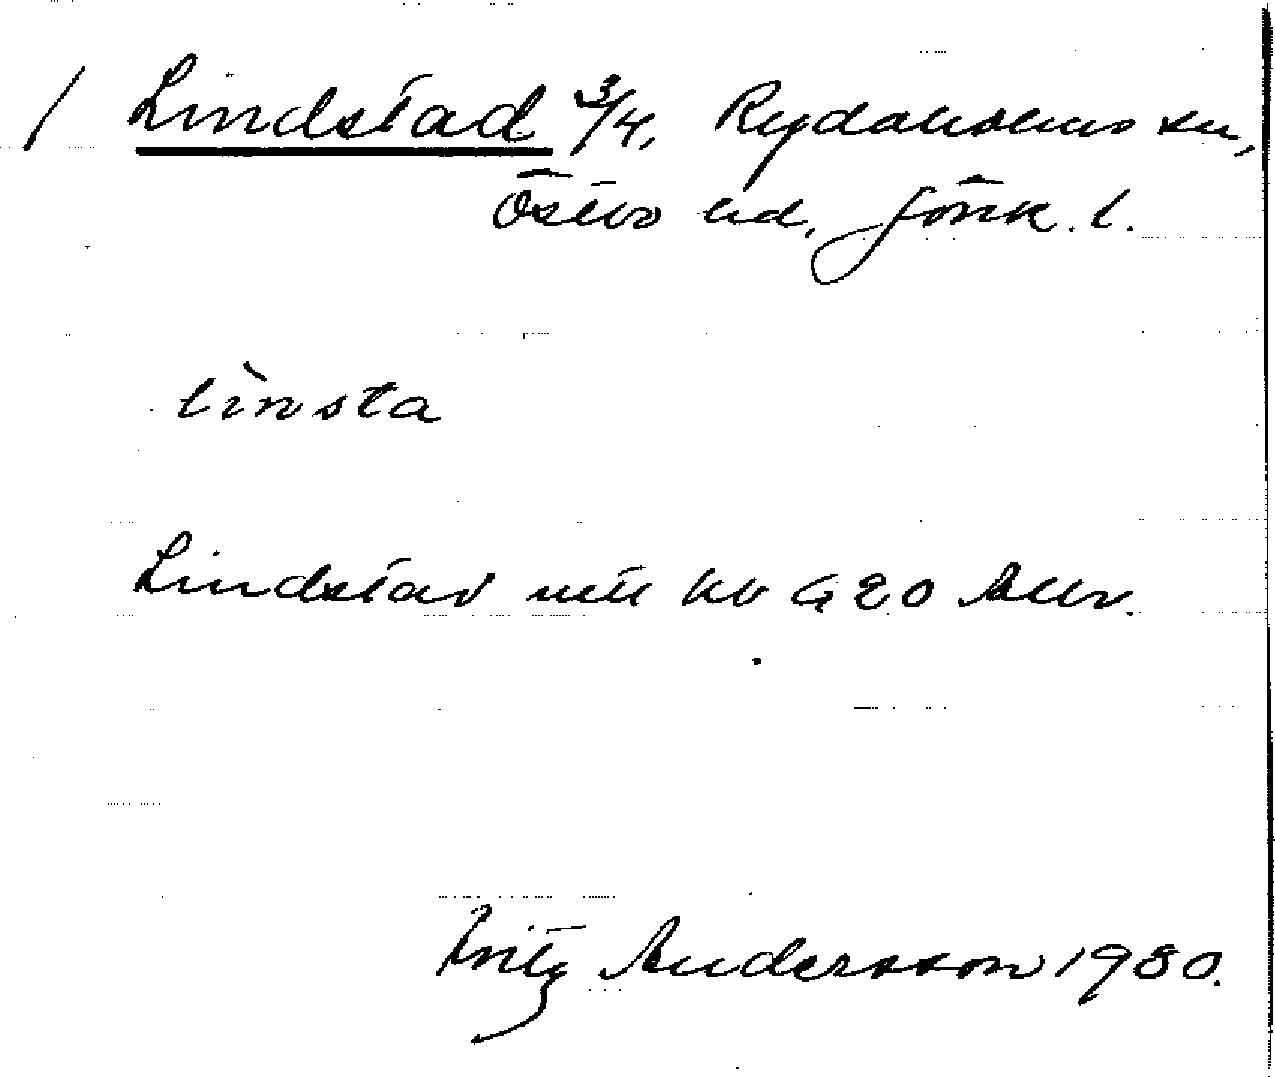 / Lindstad 3/4, Rydaholms sn,
Östbo hd, Jönk. l.
lìnsta
Lindstad
Fritz Andersson 1980.